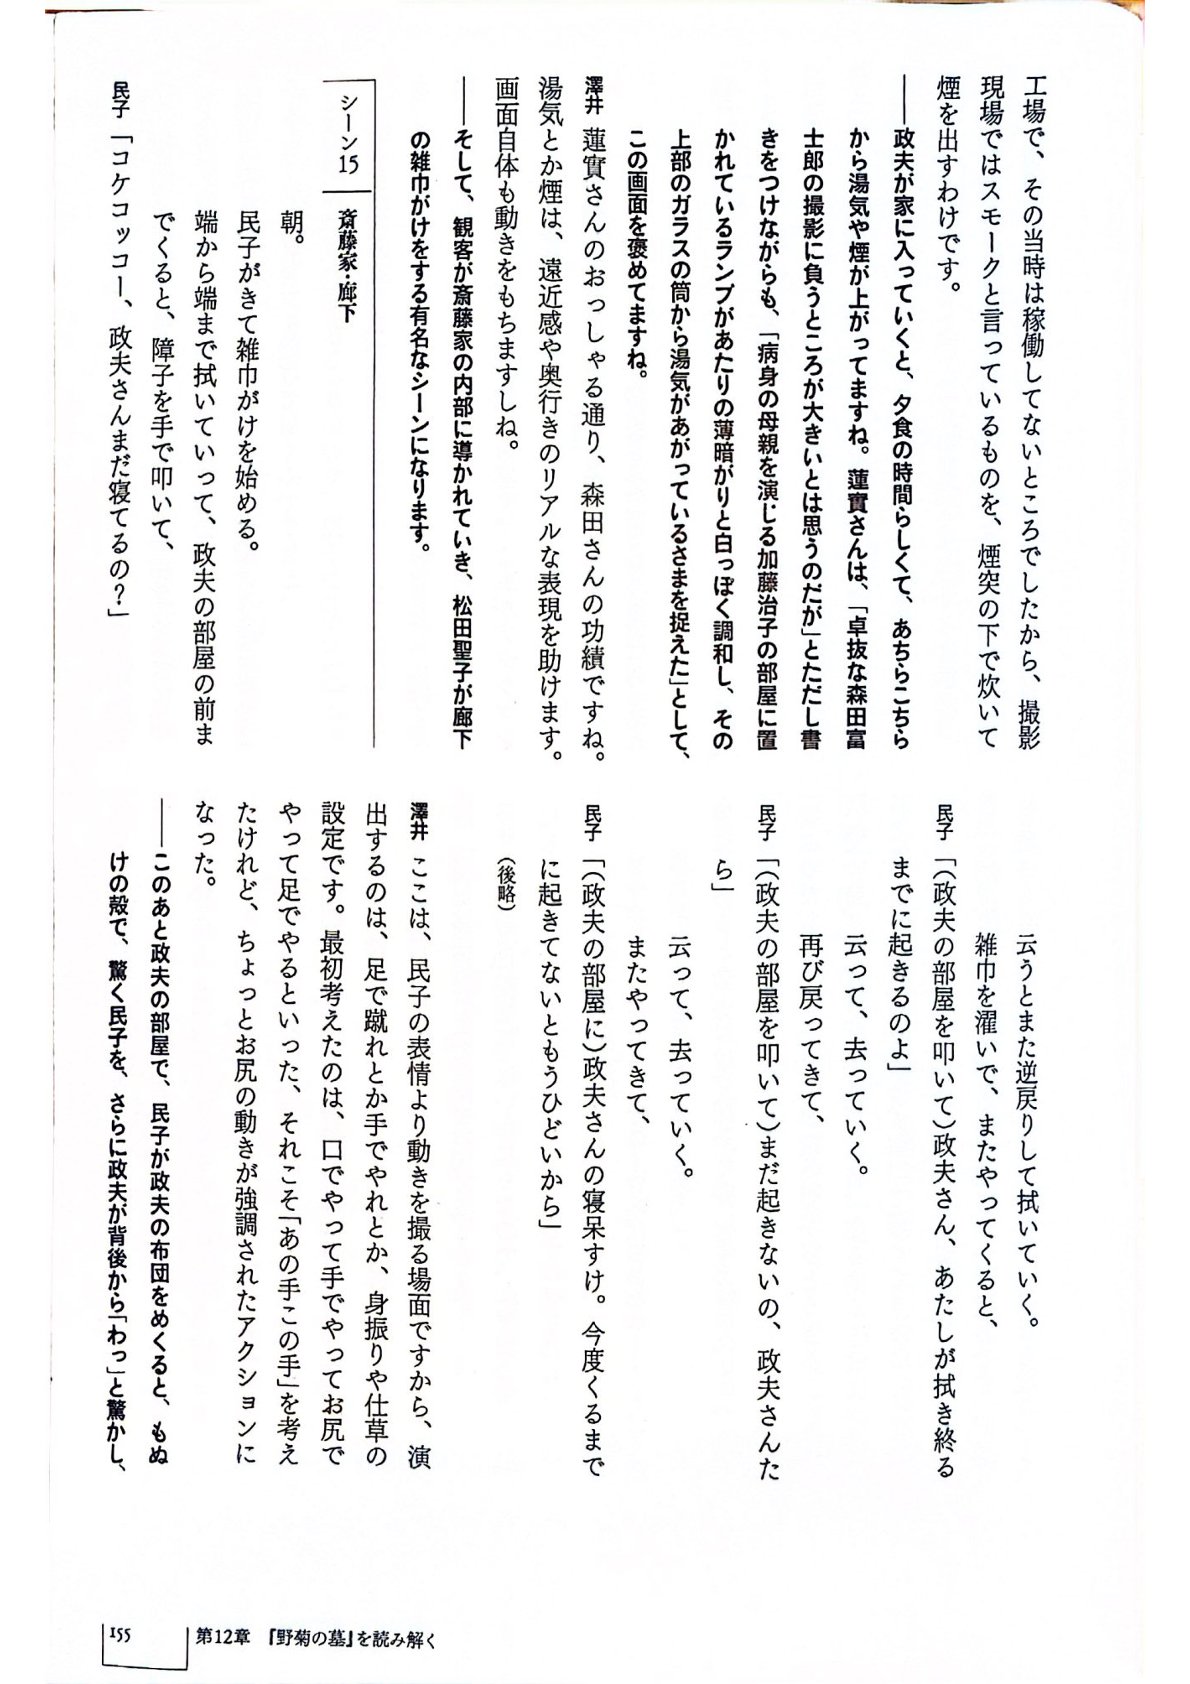 工場で、その当時は稼働してないところでしたから、撮影
現場ではスモークと言っているものを、煙突の下で炊いて
煙を出すわけです。
——政夫が家に入っていくと、夕食の時間らしくて、あちらこちら
から湯気や煙が上がってますね。蓮實さんは、「卓抜な森田富
士郎の撮影に負うところが大きいとは思うのだが」とただし書
きをつけながらも、「病身の母親を演じる加藤治子の部屋に置
かれているランプがあたりの薄暗がりと白っぽく調和し、その
上部のガラスの筒から湯気があがっているさまを捉えた」として、
この画面を褒めてますね。
澤井 蓮實さんのおっしゃる通り、森田さんの功績ですね。
湯気とか煙は、遠近感や奥行きのリアルな表現を助けます。
画面自体も動きをもちますしね。
——そして、観客が斎藤家の内部に導かれていき、松田聖子が廊下
の雑巾がけをする有名なシーンになります。
シーン15 斎藤家・廊下
朝。
民子がきて雑巾がけを始める。
端から端まで拭いていって、政夫の部屋の前ま
でくると、障子を手で叩いて、
民子「コケコッコー、政夫さんまだ寝てるの?」
云うとまた逆戻りして拭いていく。
雑巾を濯いで、またやってくると、
民子「(政夫の部屋を叩いて)政夫さん、あたしが拭き終る
までに起きるのよ」
云って、去っていく。
再び戻ってきて、
民子「(政夫の部屋を叩いて)まだ起きないの、政夫さんた
ら」
云って、去っていく。
またやってきて、
民子「(政夫の部屋に)政夫さんの寝呆すけ。今度くるまで
に起きてないともうひどいから」
(後略)
澤井 ここは、民子の表情より動きを撮る場面ですから、演
出するのは、足で蹴れとか手でやれとか、身振りや仕草の
設定です。最初考えたのは、口でやって手でやってお尻で
やって足でやるといった、それこそ「あの手この手」を考え
たけれど、ちょっとお尻の動きが強調されたアクションに
なった。
——このあと政夫の部屋で、民子が政夫の布団をめくると、もぬ
けの殻で、驚く民子を、さらに政夫が背後から「わっ」と驚かし、
155 第12章 『野菊の墓』を読み解く